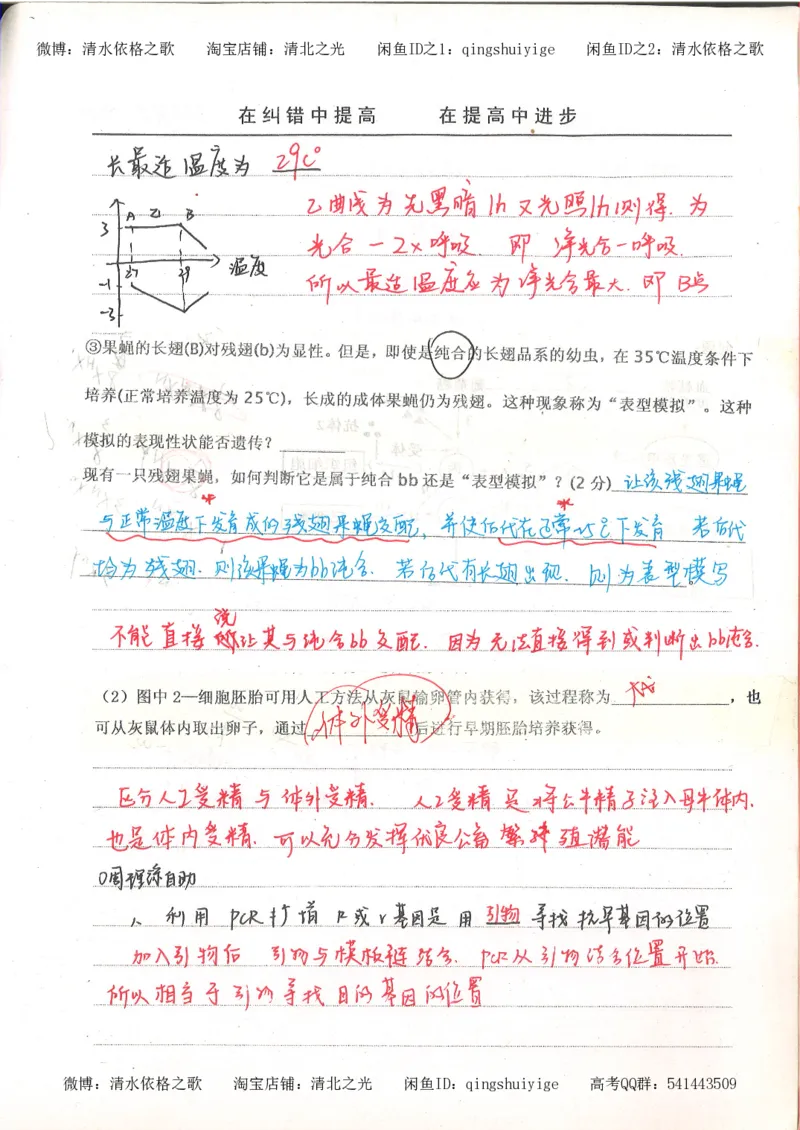 微博：清水依格之歌 淘宝店铺：清北之光 闲鱼ID之1：qingshuiyige 闲鱼ID之2：清水依格之歌
在纠错中提高 在提高中进步
长最适温度为 29℃
乙曲线为先黑暗1h又光照1h则得. 为
3 A 乙 B
光合－2×呼吸. 即 净光合－呼吸.
27 29 温度
-1
所以最适温度应为净光合最大. 即 B点
-3
③果蝇的长翅(B)对残翅(b)为显性。但是，即使是纯合的长翅品系的幼虫，在 35℃温度条件下
培养(正常培养温度为 25℃)，长成的成体果蝇仍为残翅。这种现象称为“表型模拟”。这种
模拟的表现性状能否遗传？
现有一只残翅果蝇，如何判断它是属于纯合 bb 还是“表型模拟”？(2 分) 让该残翅果蝇
与正常温度下发育成的残翅果蝇交配，并使后代在正常25℃下发育 若后代
均为残翅. 则该果蝇为bb纯合. 若后代有长翅出现. 则为表型模写
不能直接说让其与纯合bb交配. 因为无法直接得到或判断出bb纯合.
（2）图中 2—细胞胚胎可用人工方法从灰鼠输卵管内获得，该过程称为 冲卵 ，也
可从灰鼠体内取出卵子，通过 体外受精 后进行早期胚胎培养获得。
区分人工受精与体外受精. 人工受精是将公牛精子注入母牛体内.
也是体内受精. 可以充分发挥优良公畜繁殖潜能
1、利用PCR扩增R或r基因是用引物寻找抗旱基因的位置
加入引物后 引物与模板链结合. PCR从引物结合位置开始.
所以相当于引物寻找目的基因的位置
微博：清水依格之歌 淘宝店铺：清北之光 闲鱼ID：qingshuiyige 高考QQ群：541443509